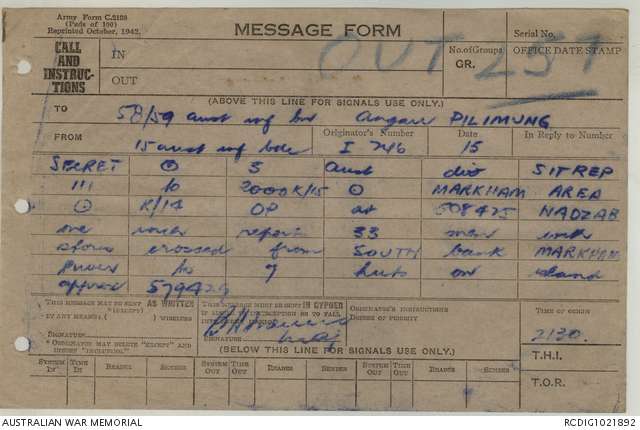 Army Form C.2128
(Pads of 100)
Reprinted October, 1942.
MESSAGE FORM
Serial No.
CALL AND INSTRUC-TIONS
IN
OUT
No. of Groups
GR.
OFFICE DATE STAMP
OUT 257
(ABOVE THIS LINE FOR SIGNALS USE ONLY.)
TO 58/59 aust inf bn Angau PILIMUNG
FROM Originator's Number Date In Reply to Number
15 aust inf bde I 746 15
SECRET ⊙ 5 Aust div SITREP
111 to 2000K/15 ⊙ MARKHAM AREA
⊙ K/14 OP at 608475 NADZAB
report 33 men with
stores crossed from SOUTH bank MARKHAM
River to 7 huts on island
approx 579429
THIS MESSAGE MAY BE SENT AS WRITTEN
(EXCEPT)
BY ANY MEANS ( ) WIRELESS
SIGNATURE
* ORIGINATOR MAY DELETE "EXCEPT" AND INSERT "INCLUDING."
THIS MESSAGE MUST BE SENT IN CYPHER
SIGNATURE Maj
ORIGINATOR'S INSTRUCTIONS
DEGREE OF PRIORITY
TIME OF ORIGIN
2130
(BELOW THIS LINE FOR SIGNALS USE ONLY.)
T.H.I.
T.O.R.
SYSTEM IN TIME IN READER SENDER SYSTEM OUT TIME OUT READER SENDER SYSTEM OUT TIME OUT READER SENDER
AUSTRALIAN WAR MEMORIAL
RCDIG1021892